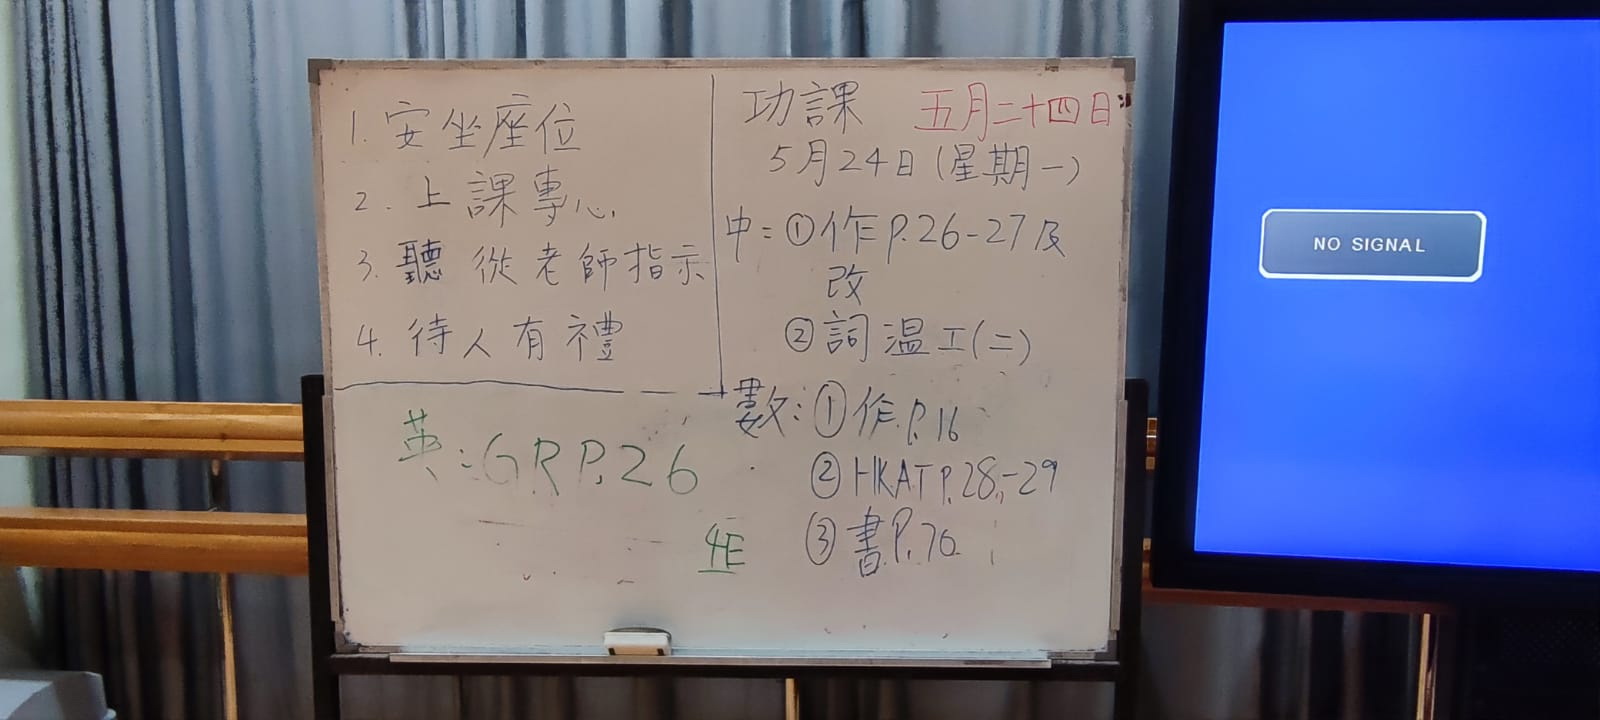 1. 安坐座位
2. 上課專心
3. 聽從老師指示
4. 待人有禮
功課 五月二十四日
5月24日(星期一)
中:①作P.26-27及
改
②詞溫工(二)
數:①作P.16
②HKAT P.28-29
③書P.76
英:GRP.26
4E
NO SIGNAL